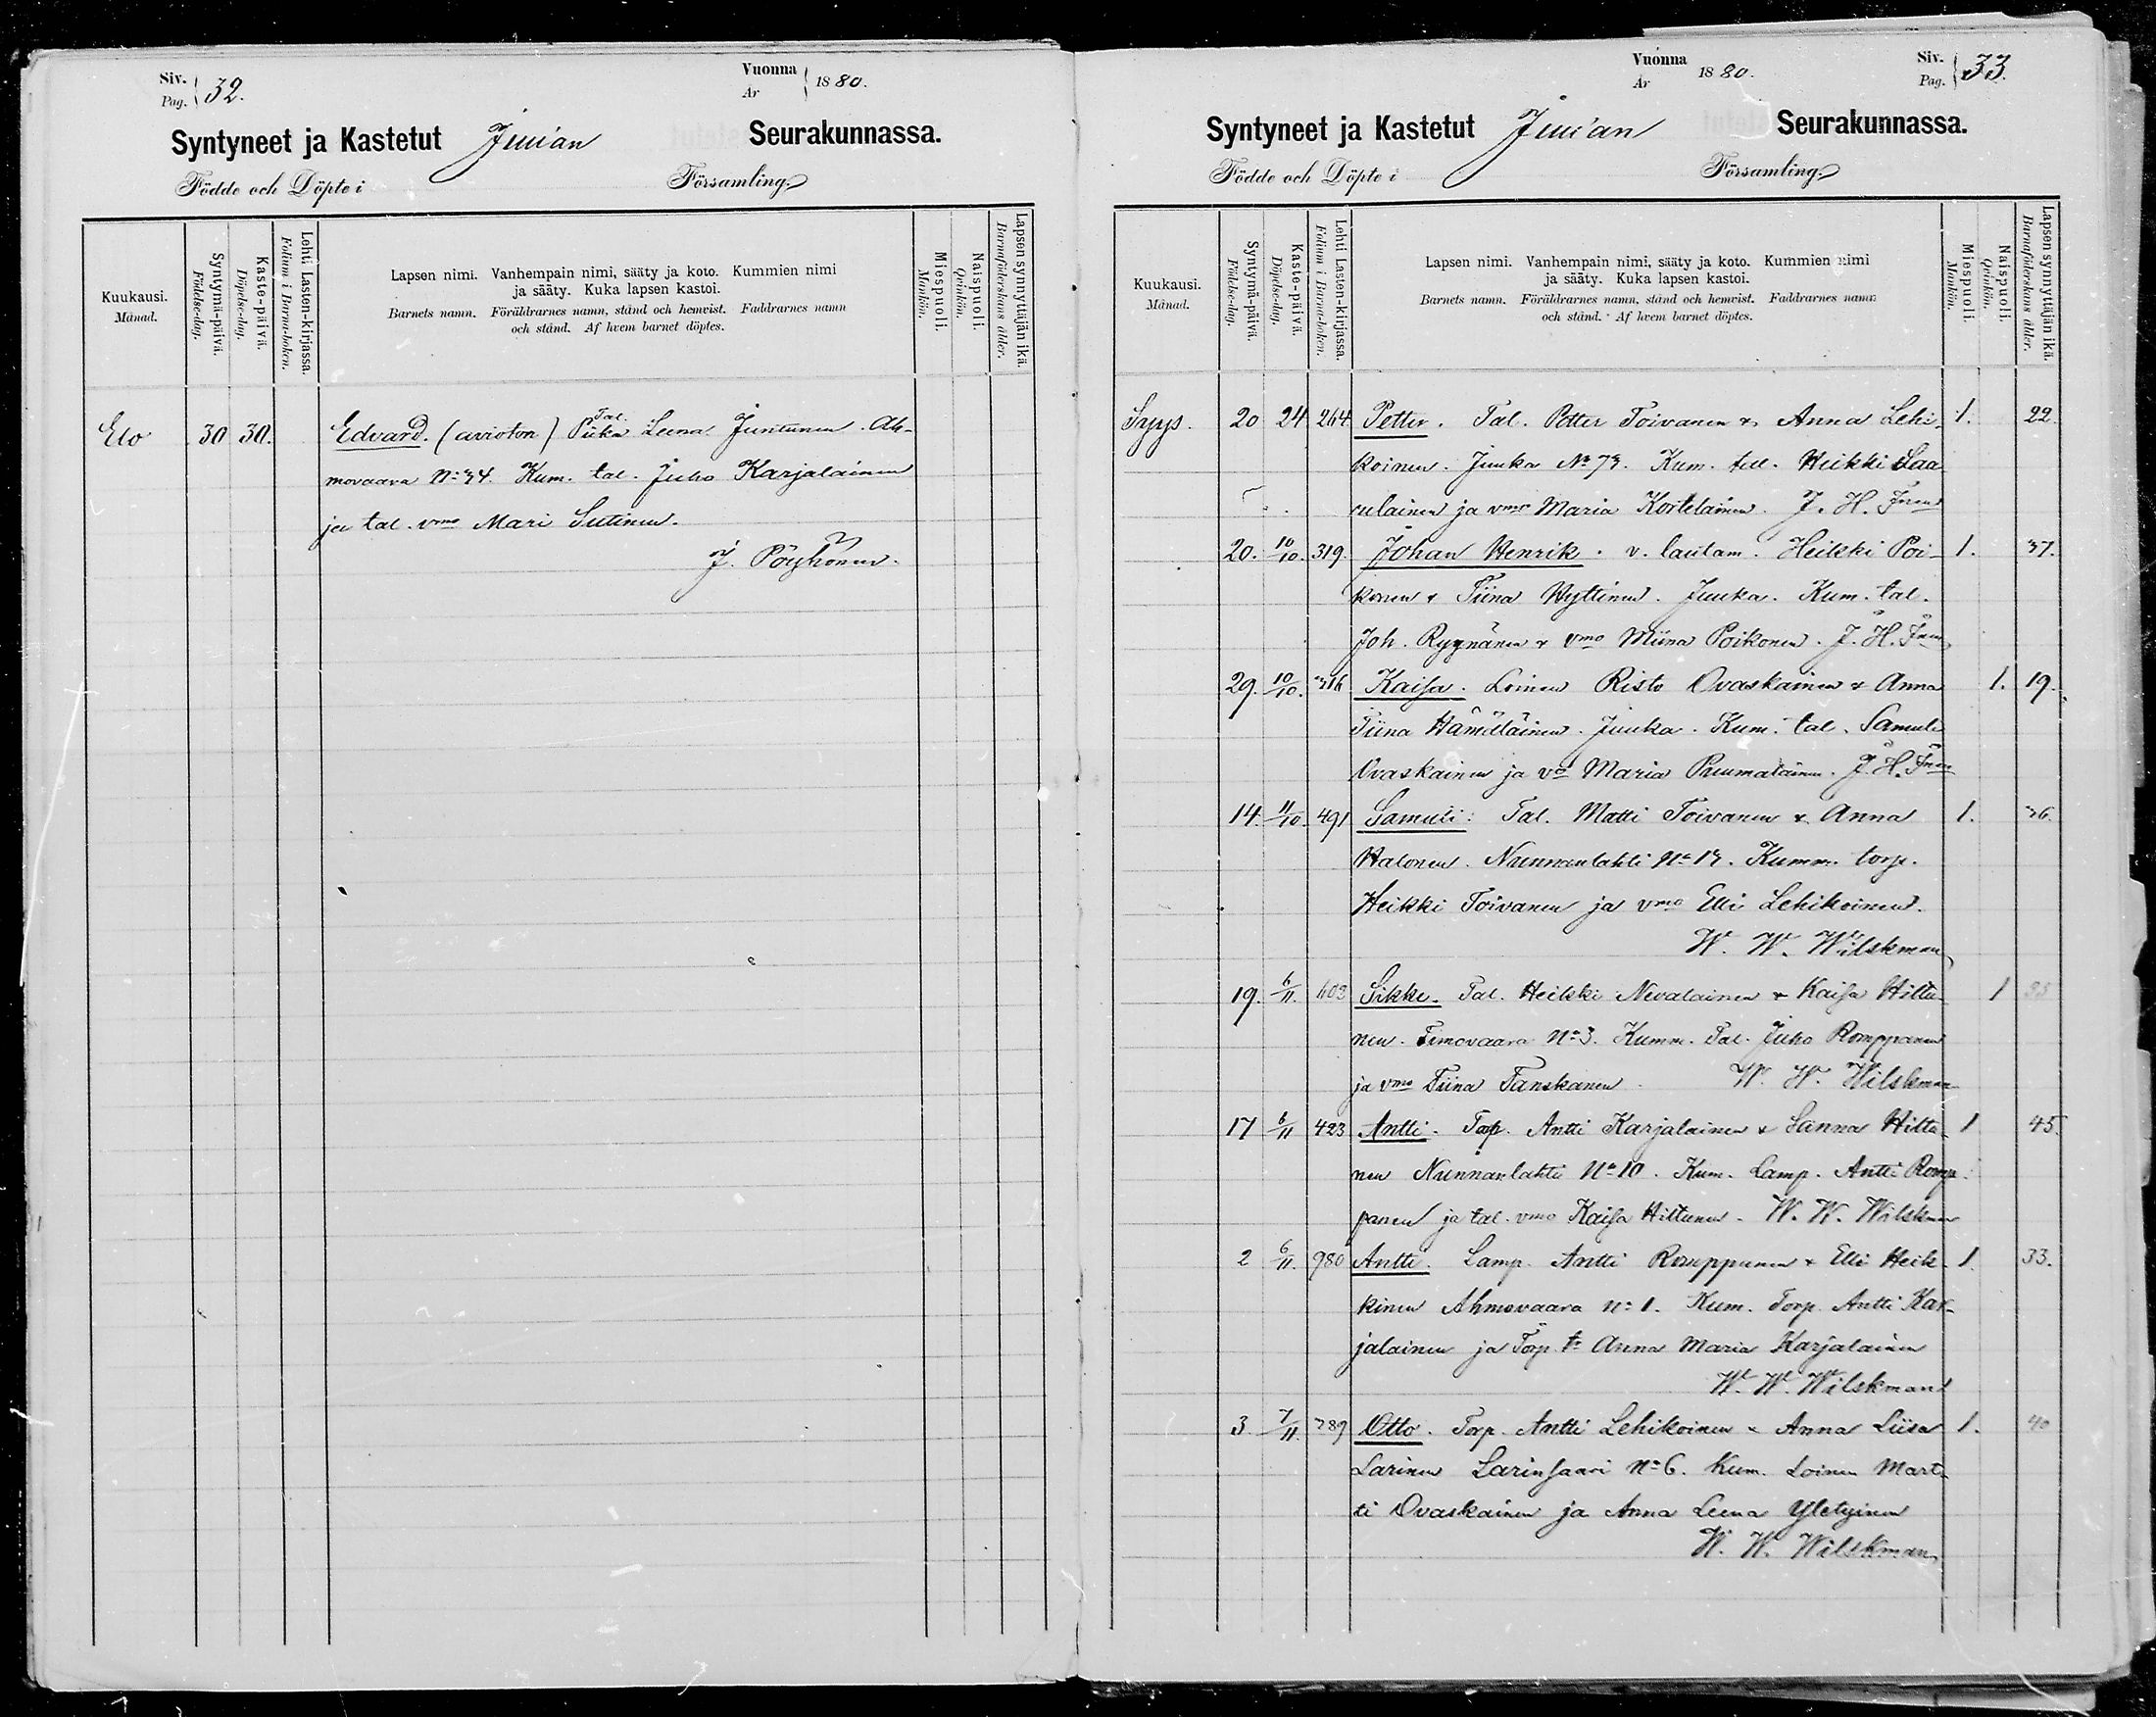 Siv. Pag. 32.
Vuonna År 1880.
Syntyneet ja Kastetut Juuan Seurakunnassa.
Födde och Döpte i Församling.
Kuukausi. Månad.
Syntymä-päivä. Födelse-dag.
Kaste-päivä. Döpelse-dag.
Lehti Lasten-kirjassa. Folium i Barna-boken.
Lapsen nimi. Vanhempain nimi, sääty ja koto. Kummien nimi
ja sääty. Kuka lapsen kastoi.
Barnets namn. Föräldrarnes namn, stånd och hemvist. Faddrarnes namn
och stånd. Af hvem barnet döptes.
Miespuoli. Mankön.
Naispuoli. Qvinkön.
Lapsen synnyttäjän ikä. Barnaföderskans ålder.
Elo 30 30. Edvard. (avioton) Tal. Piika Leena Juntunen. Ah-
movaara No 34. Kum. tal. Juho Karjalainen
ja tal. vmo Mari Sutinen.
J. Pöyhönen.
Vuonna År 1880.
Siv. Pag. 33.
Syntyneet ja Kastetut Juuan Seurakunnassa.
Födde och Döpte i Församling.
Kuukausi. Månad.
Syntymä-päivä. Födelse-dag.
Kaste-päivä. Döpelse-dag.
Lehti Lasten-kirjassa. Folium i Barna-boken.
Lapsen nimi. Vanhempain nimi, sääty ja koto. Kummien nimi
ja sääty. Kuka lapsen kastoi.
Barnets namn. Föräldrarnes namn, stånd och hemvist. Faddrarnes namn
och stånd. Af hvem barnet döptes.
Miespuoli. Mankön.
Naispuoli. Qvinkön.
Lapsen synnyttäjän ikä. Barnaföderskans ålder.
Syys. 20 24 264 Petter. Tal. Petter Toivanen & Anna Lehi- 1. 22.
koinen. Juuka No 73. Kum. tal. Heikki Laa
rulainen ja vmo Maria Kortelainen. J. H.
20. 10/10. 319. Johan Henrik. v. lautam. Heikki Poi- 1. 37.
konen & Tiina Hyttinen. Juuka. Kum. tal.
Joh. Ryynänen & vmo Miina Poikonen. J. H.
29. 10/10. 316 Kaisa. Loinen Risto Ovaskainen & Anna 1. 19.
Tiina Hämäläinen. Juuka. Kum. tal. Samuli
Ovaskainen ja vo Maria Puumalainen. J. H.
14. 11/10. 491 Samuli: Tal. Matti Toivanen & Anna 1. 36.
Halonen. Nunnanlahti No 13. Kumm. torp.
Heikki Toivanen ja vmo Elli Lehikoinen.
W. W. Wilskman
19. 6/11. 603 Sikke. Tal. Heikki Nevalainen & Kaisa Hiltu- 1 35
nen. Timovaara No 3. Kumm. Tal. Juho Romppanen
ja vmo Tiina Tanskanen. W. W. Wilskman
17 6/11 423 Antti. Torp. Antti Karjalainen & Sanna Hiltu- 1 45.
nen Nunnanlahti No 10. Kum. Lamp. Antti Romp-
panen ja tal. vmo Kaisa Hiltunen. W. W. Wilskman
2 6/11. 980 Antti. Lamp. Antti Romppanen & Elli Heik- 1. 33.
kinen Ahmovaara No 1. Kum. Torp. Antti Kar-
jalainen ja Torp. tr Anna Maria Karjalainen
W. W. Wilskman
3. 7/11. 789 Otto. Torp. Antti Lehikoinen & Anna Liisa 1. 40
Larinen Larinsaari No 6. Kum. Loinen Mart-
ti Ovaskainen ja Anna Leena Yletyinen
W. W. Wilskman